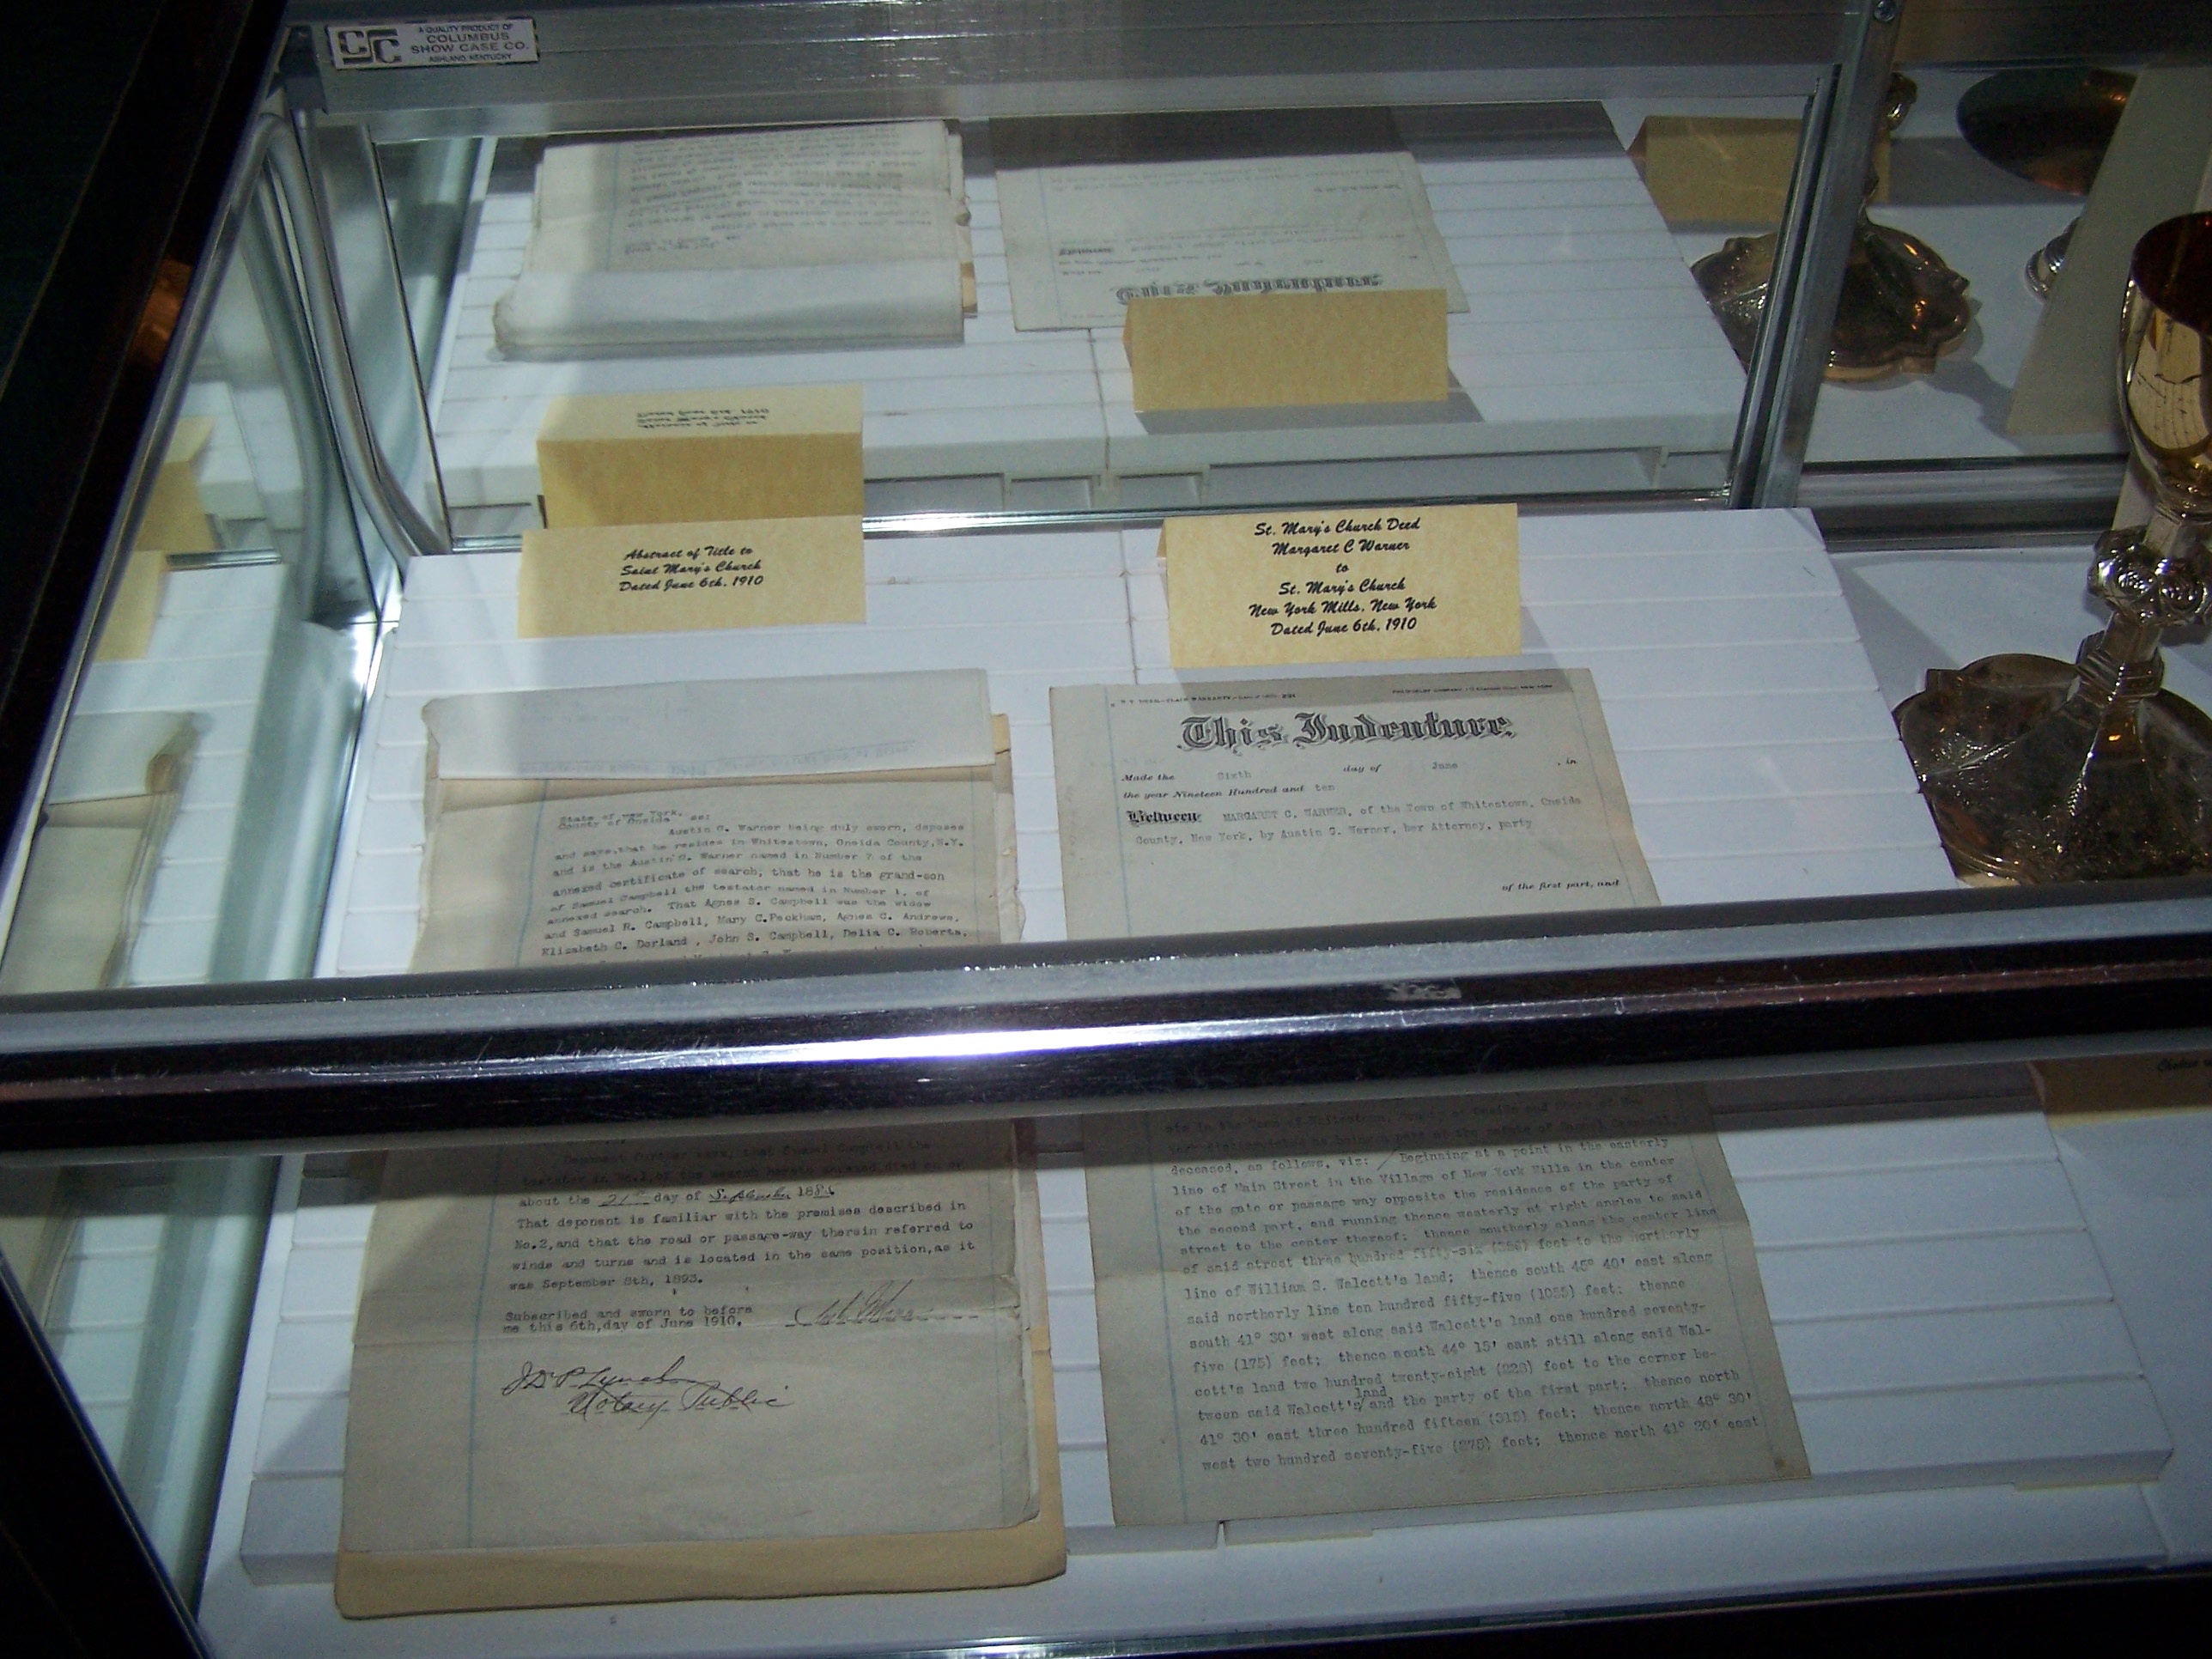 A QUALITY PRODUCT OF
COLUMBUS
SHOW CASE CO.
ASHLAND, KENTUCKY
Abstract of Title to
Saint Mary's Church
Dated June 6th, 1910
St. Mary's Church Deed
Margaret C Warner
to
St. Mary's Church
New York Mills, New York
Dated June 6th, 1910
State of New York,
County of Oneida ss:
Austin G. Warner being duly sworn, deposes
and says, that he resides in Whitestown, Oneida County, N.Y.
and is the Austin G. Warner named in Number 7 of the
annexed certificate of search, that he is the grand-son
of Samuel Campbell the testator named in Number 1, of
annexed search. That Agnes S. Campbell was the widow
and Samuel R. Campbell, Mary C. Peckham, Agnes C. Andrews,
Elizabeth C. Dorland, John S. Campbell, Delia C. Roberts,
about the 21st day of September 188
That deponent is familiar with the premises described in
No.2, and that the road or passage-way therein referred to
winds and turns and is located in the same position, as it
was September 8th, 1893.
Subscribed and sworn to before
me this 6th, day of June 1910.
Notary Public
This Indenture,
Made the Sixth day of June, in
the year Nineteen Hundred and ten
Between MARGARET C. WARNER, of the Town of Whitestown, Oneida
County, New York, by Austin G. Warner, her Attorney, party
of the first part, and
deceased, as follows, viz: Beginning at a point in the easterly
line of Main Street in the Village of New York Mills in the center
of the gate or passage way opposite the residence of the party of
the second part, and running thence westerly at right angles to said
street to the center thereof; thence southerly along the center line
of said street three hundred fifty-six (356) feet to the northerly
line of William S. Walcott's land; thence south 45° 40' east along
said northerly line ten hundred fifty-five (1055) feet; thence
south 41° 30' west along said Walcott's land one hundred seventy-
five (175) feet; thence south 44° 15' east still along said Wal-
cott's land two hundred twenty-eight (228) feet to the corner be-
tween said Walcott's land and the party of the first part; thence north
41° 30' east three hundred fifteen (315) feet; thence north 48° 30'
west two hundred seventy-five (275) feet; thence north 41° 30' east